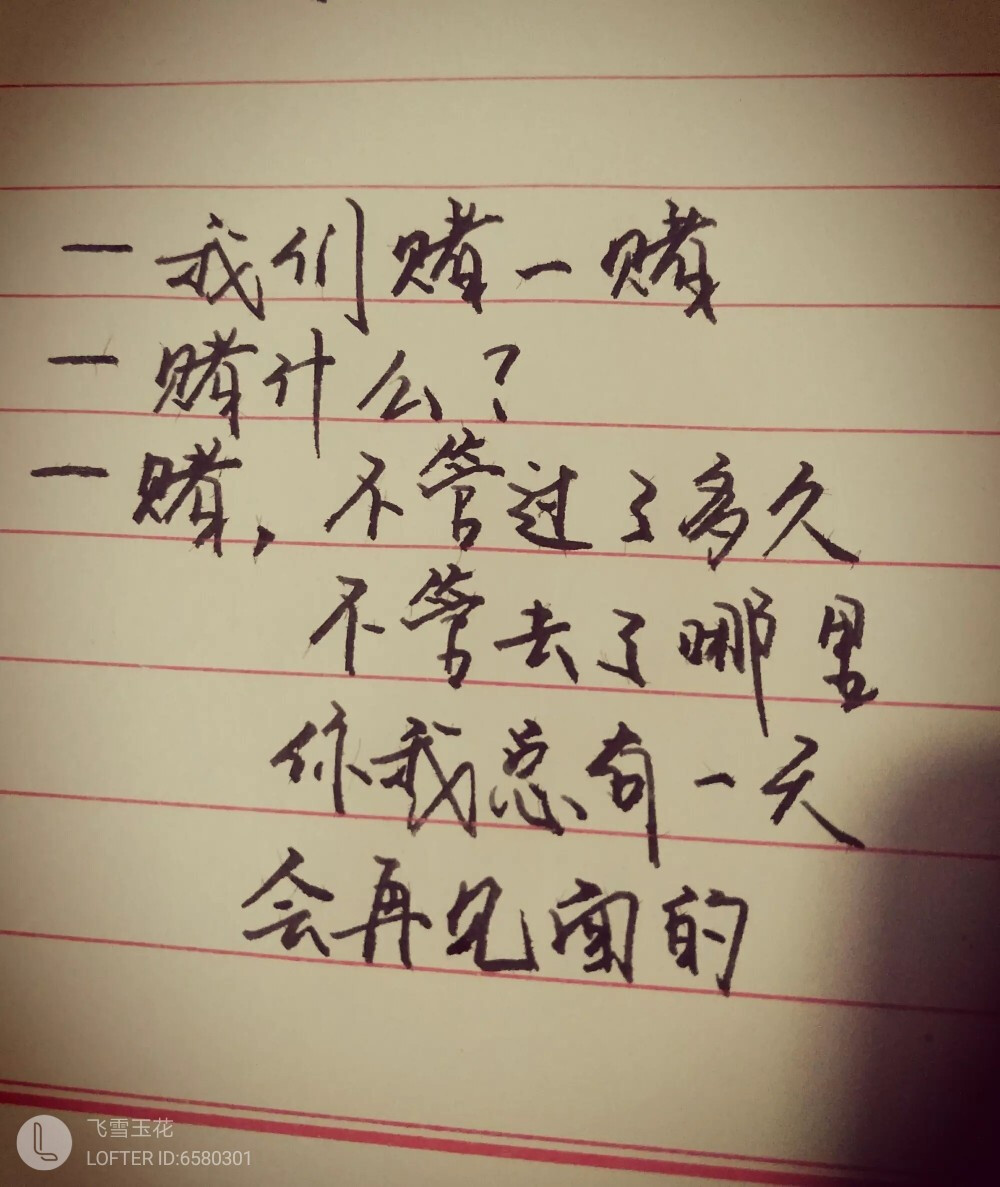 一我们赌一赌
一赌什么?
一赌,不管过了多久
不管去了哪里
你我总有一天
会再见面的
飞雪玉花
LOFTER ID:6580301